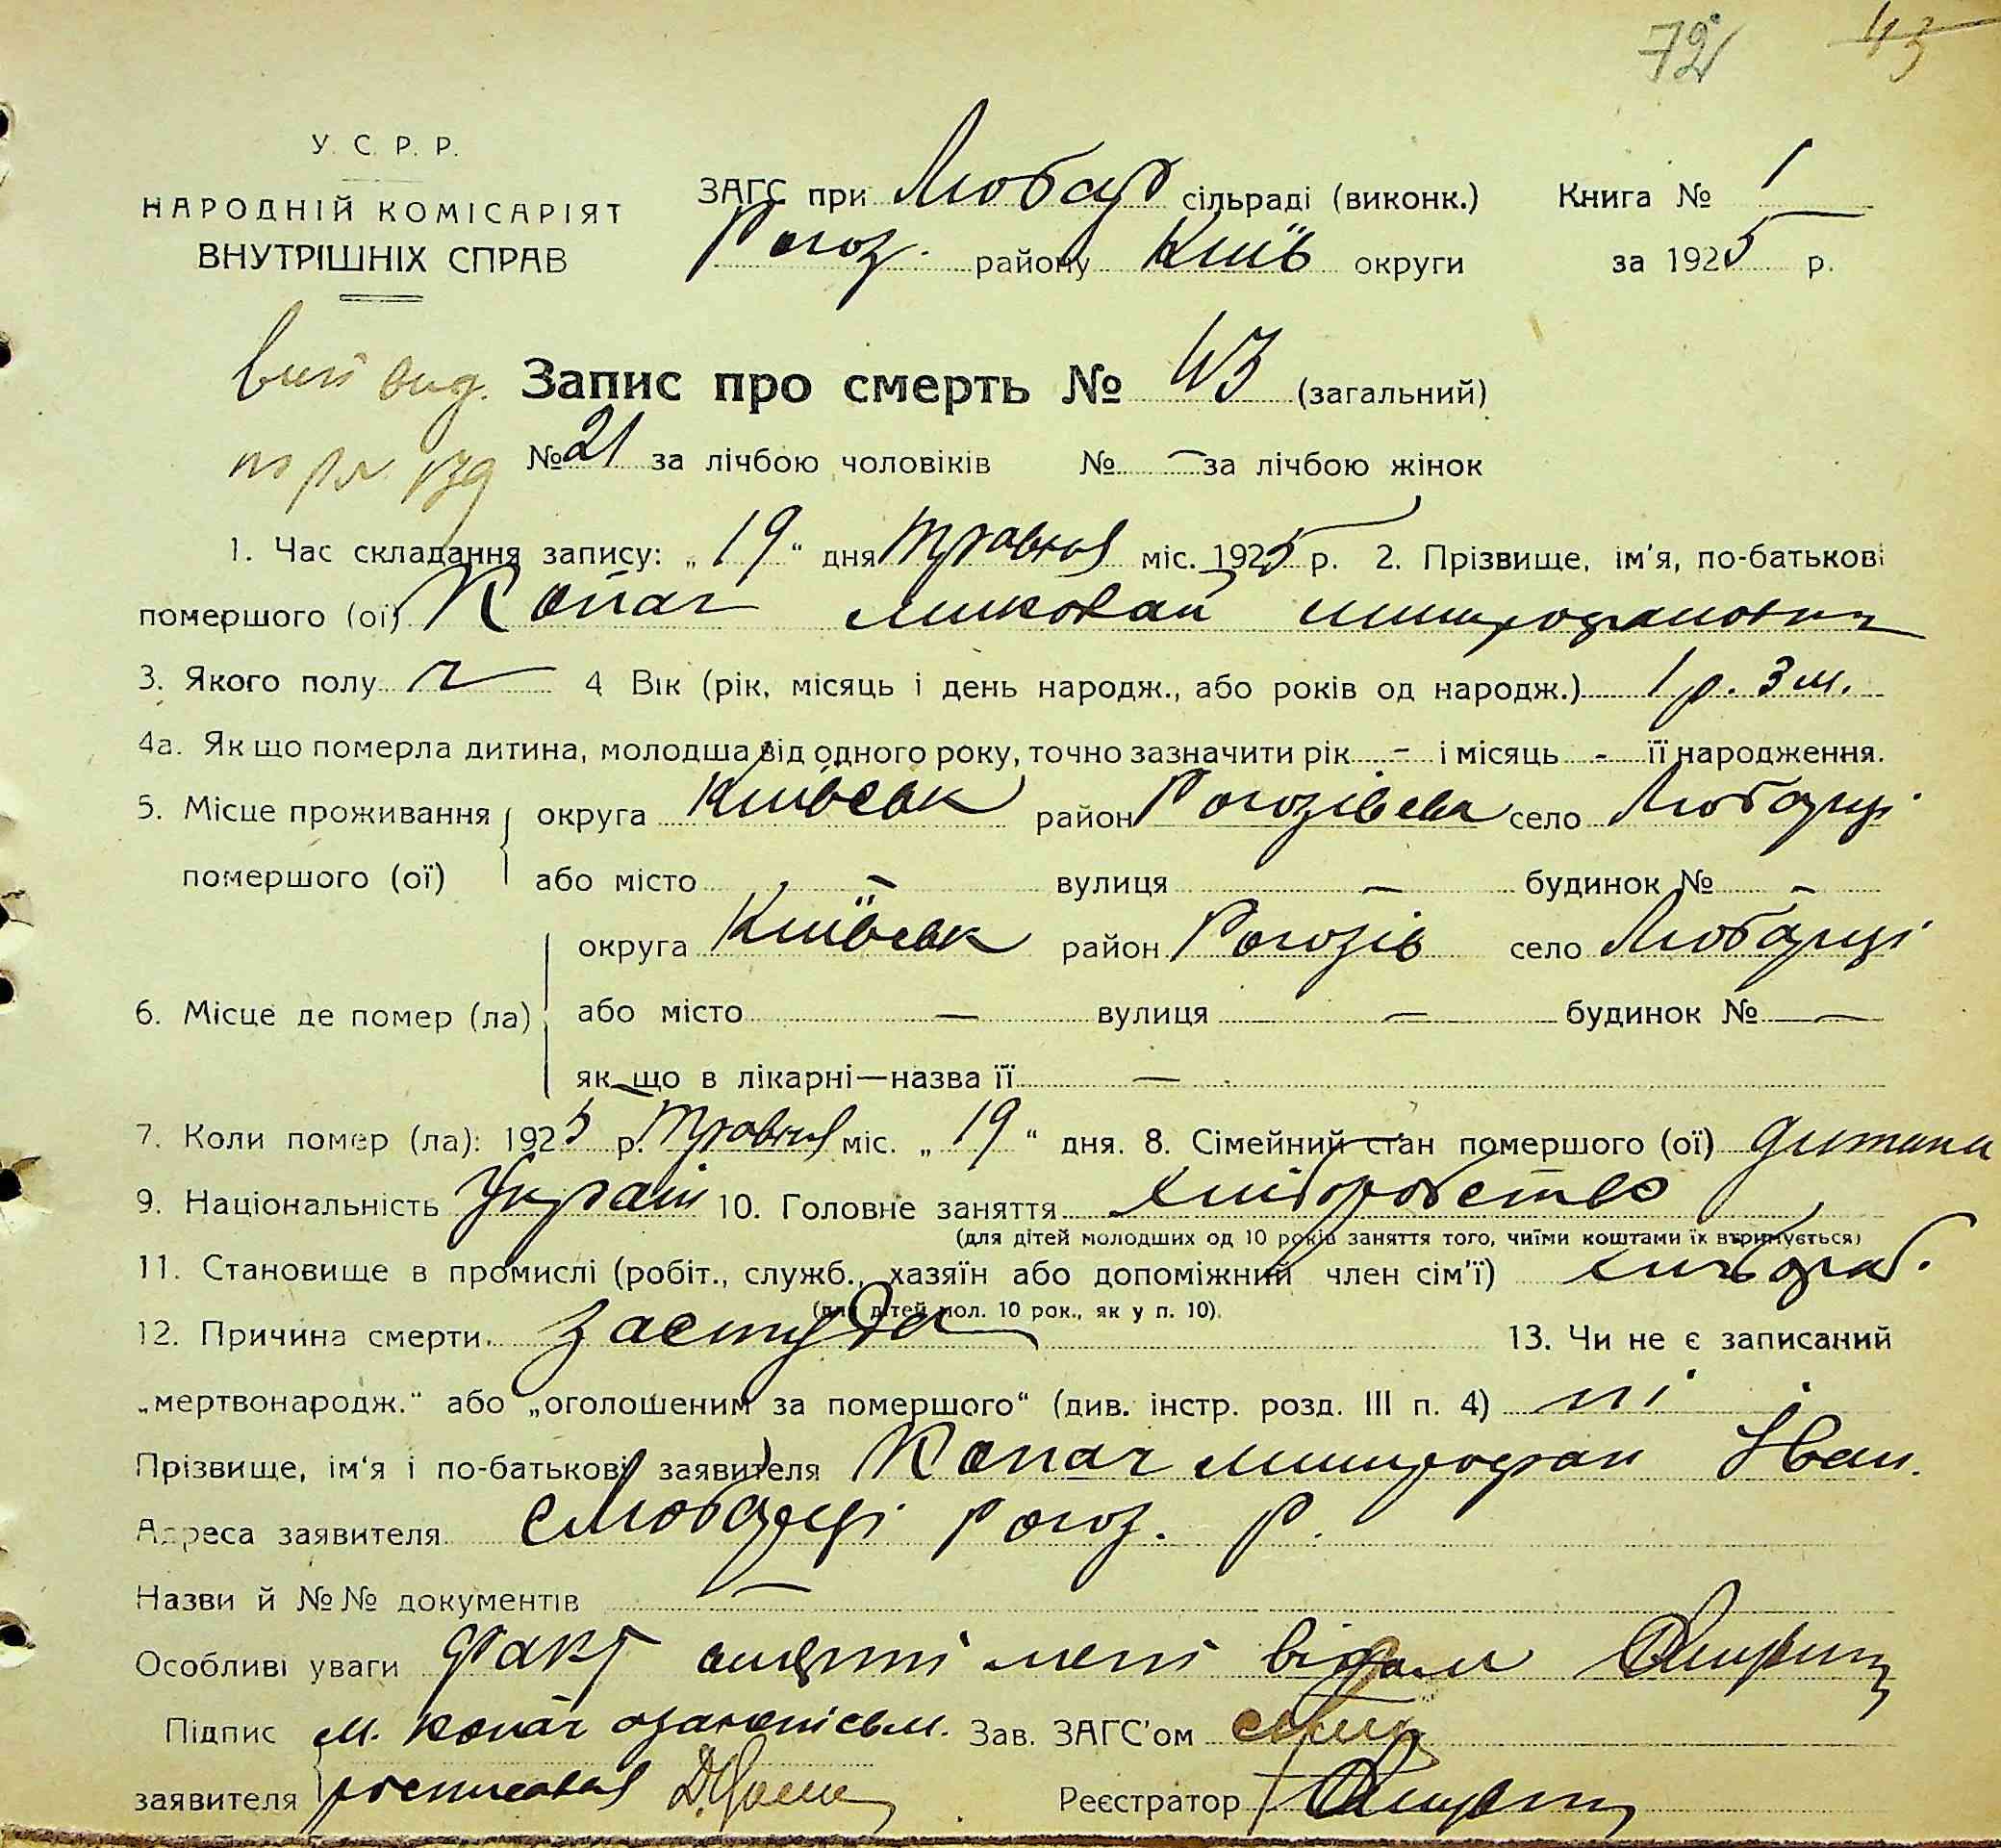 72 43
У. С. Р. Р.
НАРОДНІЙ КОМІСАРІЯТ
ВНУТРІШНІХ СПРАВ
ЗАГС при Любар сільраді (виконк.) Книга № 1
Рогоз. району Київ округи за 1925 р.
Запис про смерть № 43 (загальний)
№ 21 за лічбою чоловіків № — за лічбою жінок
1. Час складання запису: „19“ дня Травня міс. 1925 р. 2. Прізвище, ім'я, по-батькові
помершого (ої) Копач Миколай Митрофанович
3. Якого полу ч 4 Вік (рік, місяць і день народж., або років од народж.) 1 р. 3 м.
4а. Як що померла дитина, молодша від одного року, точно зазначити рік - і місяць - її народження.
5. Місце проживання округа Київськ район Рогозівськ село Любарці
помершого (ої) або місто — вулиця — будинок № —
округа Київськ район Рогозів село Любарці
6. Місце де помер (ла) або місто — вулиця — будинок № —
як що в лікарні—назва її —
7. Коли помер (ла): 1925 р. Травня міс. „19“ дня. 8. Сімейний стан помершого (ої) дитина
9. Національність Україн 10. Головне заняття хліборобство
(для дітей молодших од 10 років заняття того, чиїми коштами їх втримується)
11. Становище в промислі (робіт., служб., хазяїн або допоміжний член сім'ї) хлібороб.
(для дітей мол. 10 рок., як у п. 10).
12. Причина смерти застуда 13. Чи не є записаний
„мертвонародж.“ або „оголошеним за помершого“ (див. інстр. розд. III п. 4) ні
Прізвище, ім'я і по-батькові заявителя Копач Митрофан Іван.
Адреса заявителя с Любарці Рогоз. Р.
Назви й №№ документів —
Особливі уваги факт смерті мені відом
Підпис М. Копач Зав. ЗАГС'ом
заявителя Реєстратор